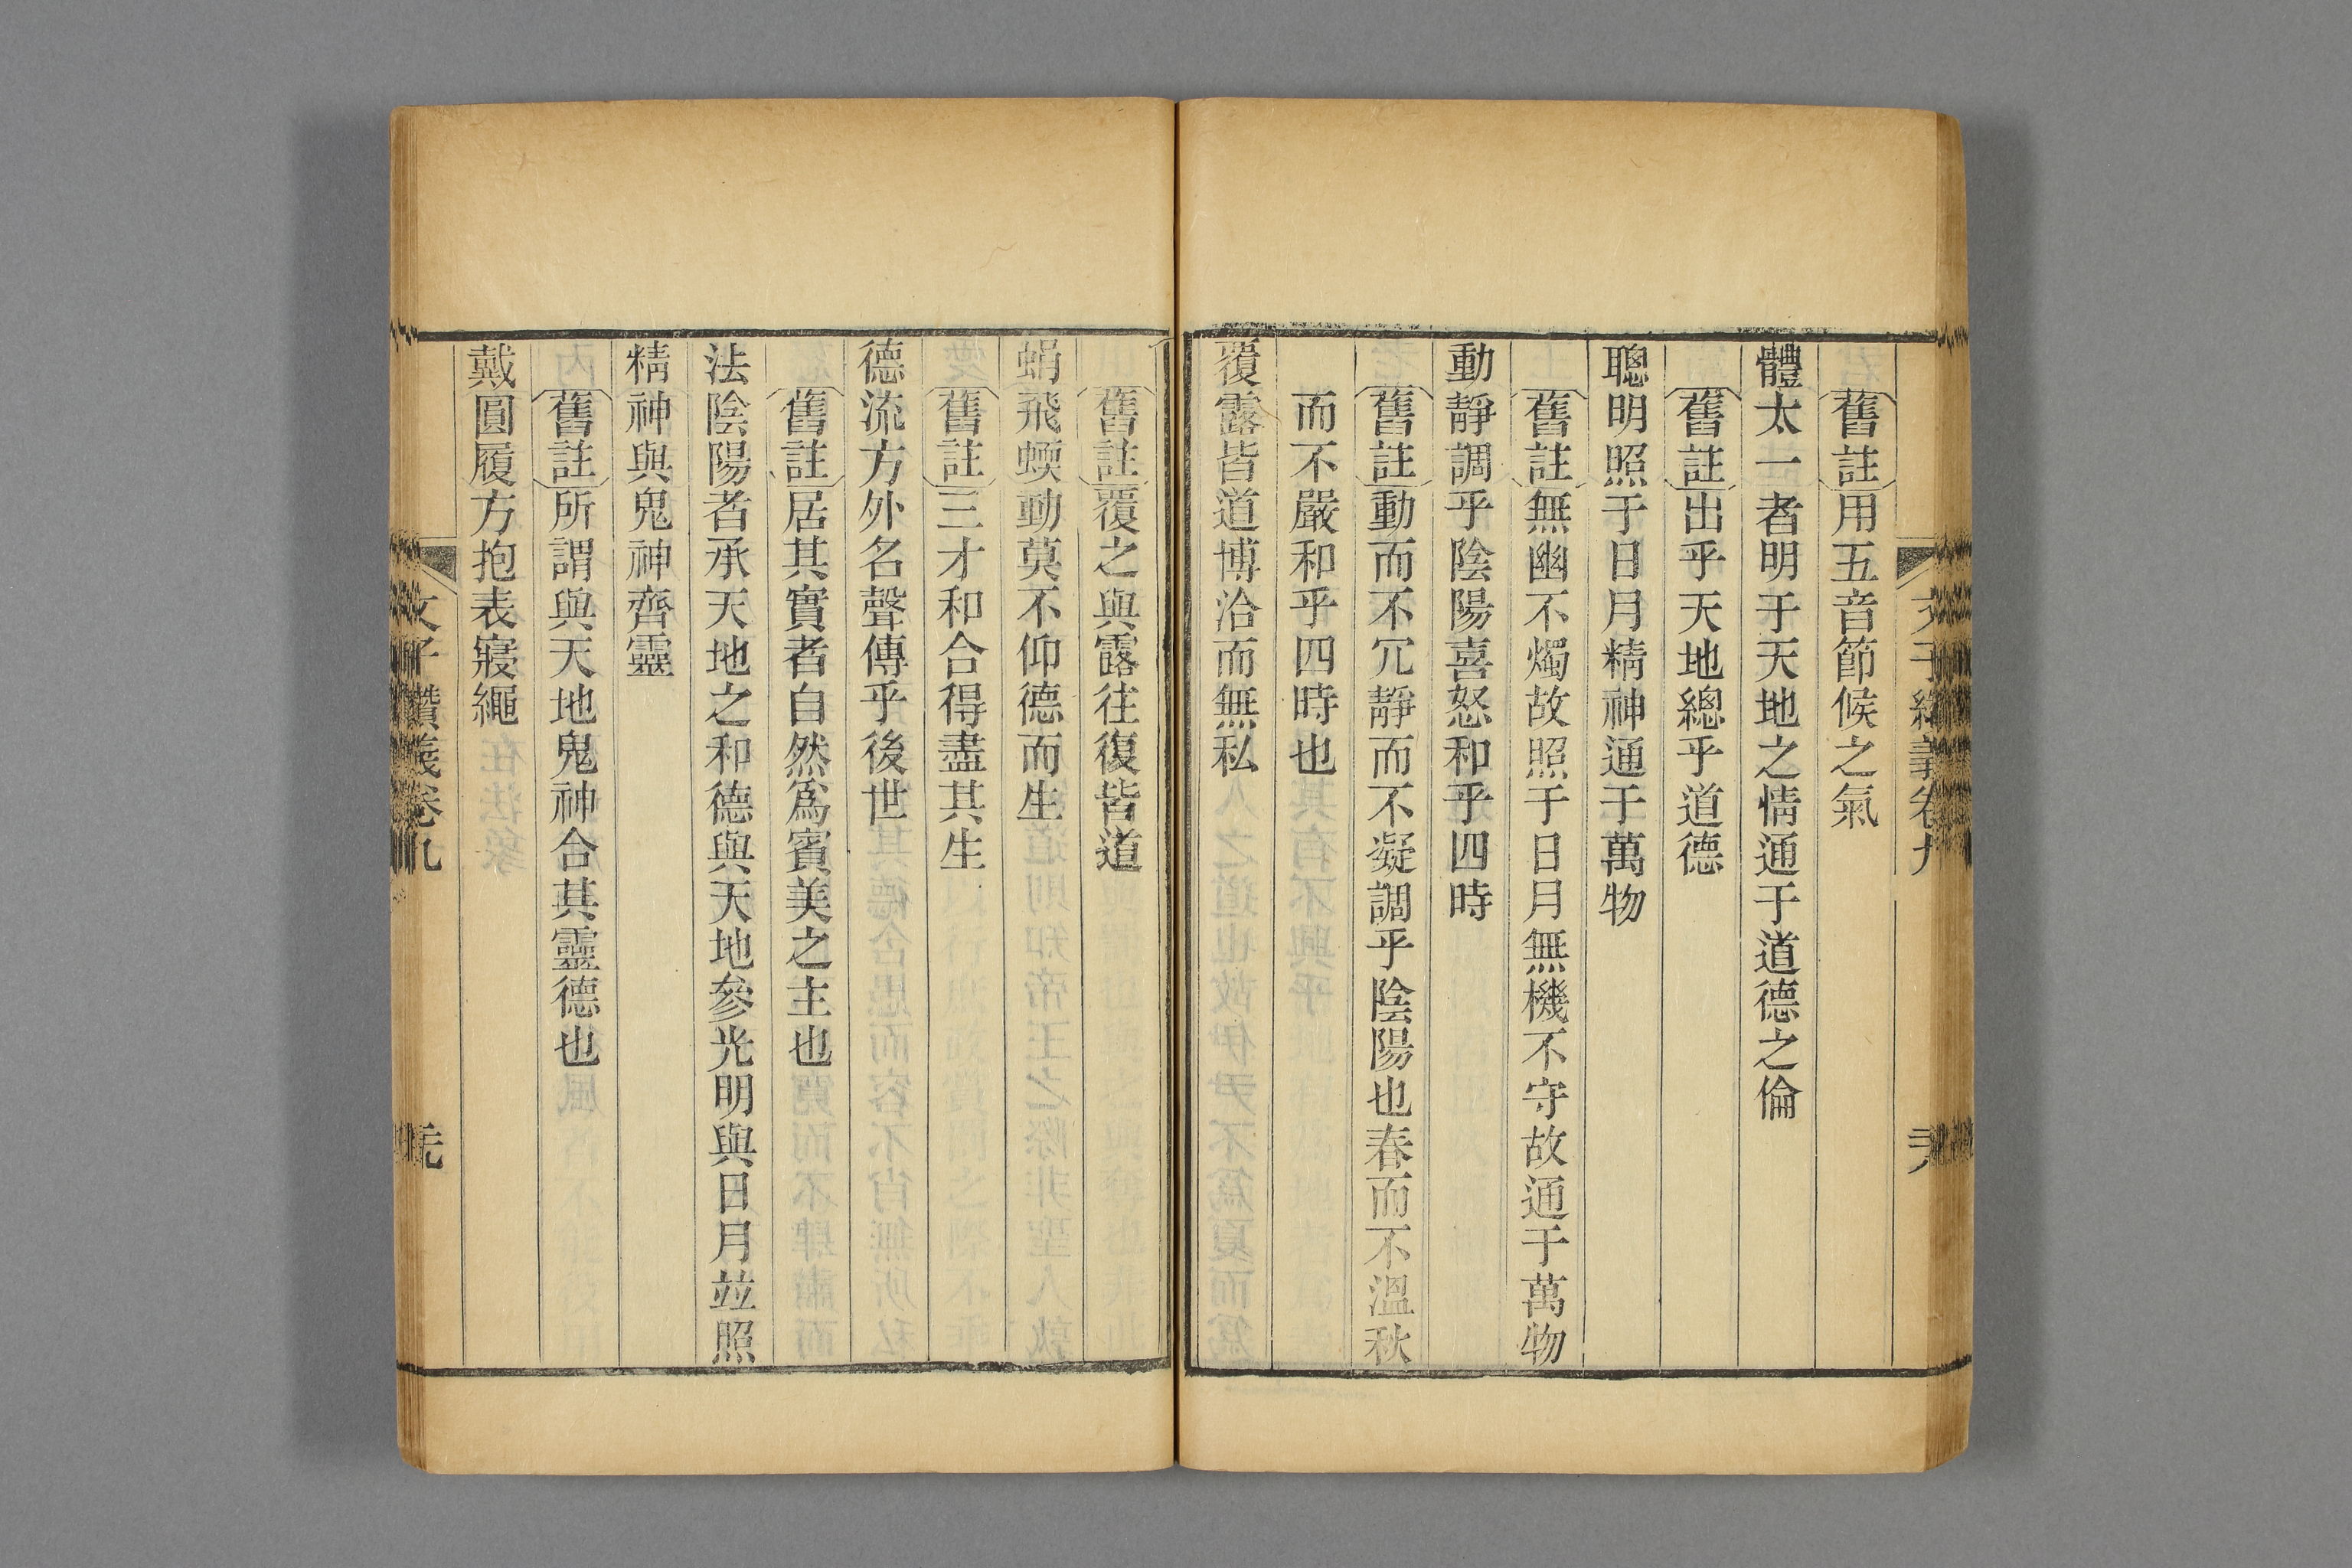 舊註用五音節候之氣
體太一者明于天地之情通于道德之倫
舊註出乎天地總乎道德
聰明照于日月精神通于萬物
舊註無幽不燭故照于日月無機不守故通于萬物
動靜調乎陰陽喜怒和乎四時
舊註動而不冗靜而不凝調乎陰陽也春而不溫秋
而不嚴和乎四時也
覆露皆道博洽而無私
舊註覆之與露往復皆道
蜎飛蝡動莫不仰德而生
舊註三才和合得盡其生
德流方外名聲傳乎後世
舊註居其實者自然爲賓美之主也
法陰陽者承天地之和德與天地參光明與日月並照
精神與鬼神齊靈
舊註所謂與天地鬼神合其靈德也
戴圓履方抱表寢繩
文子纘義卷九